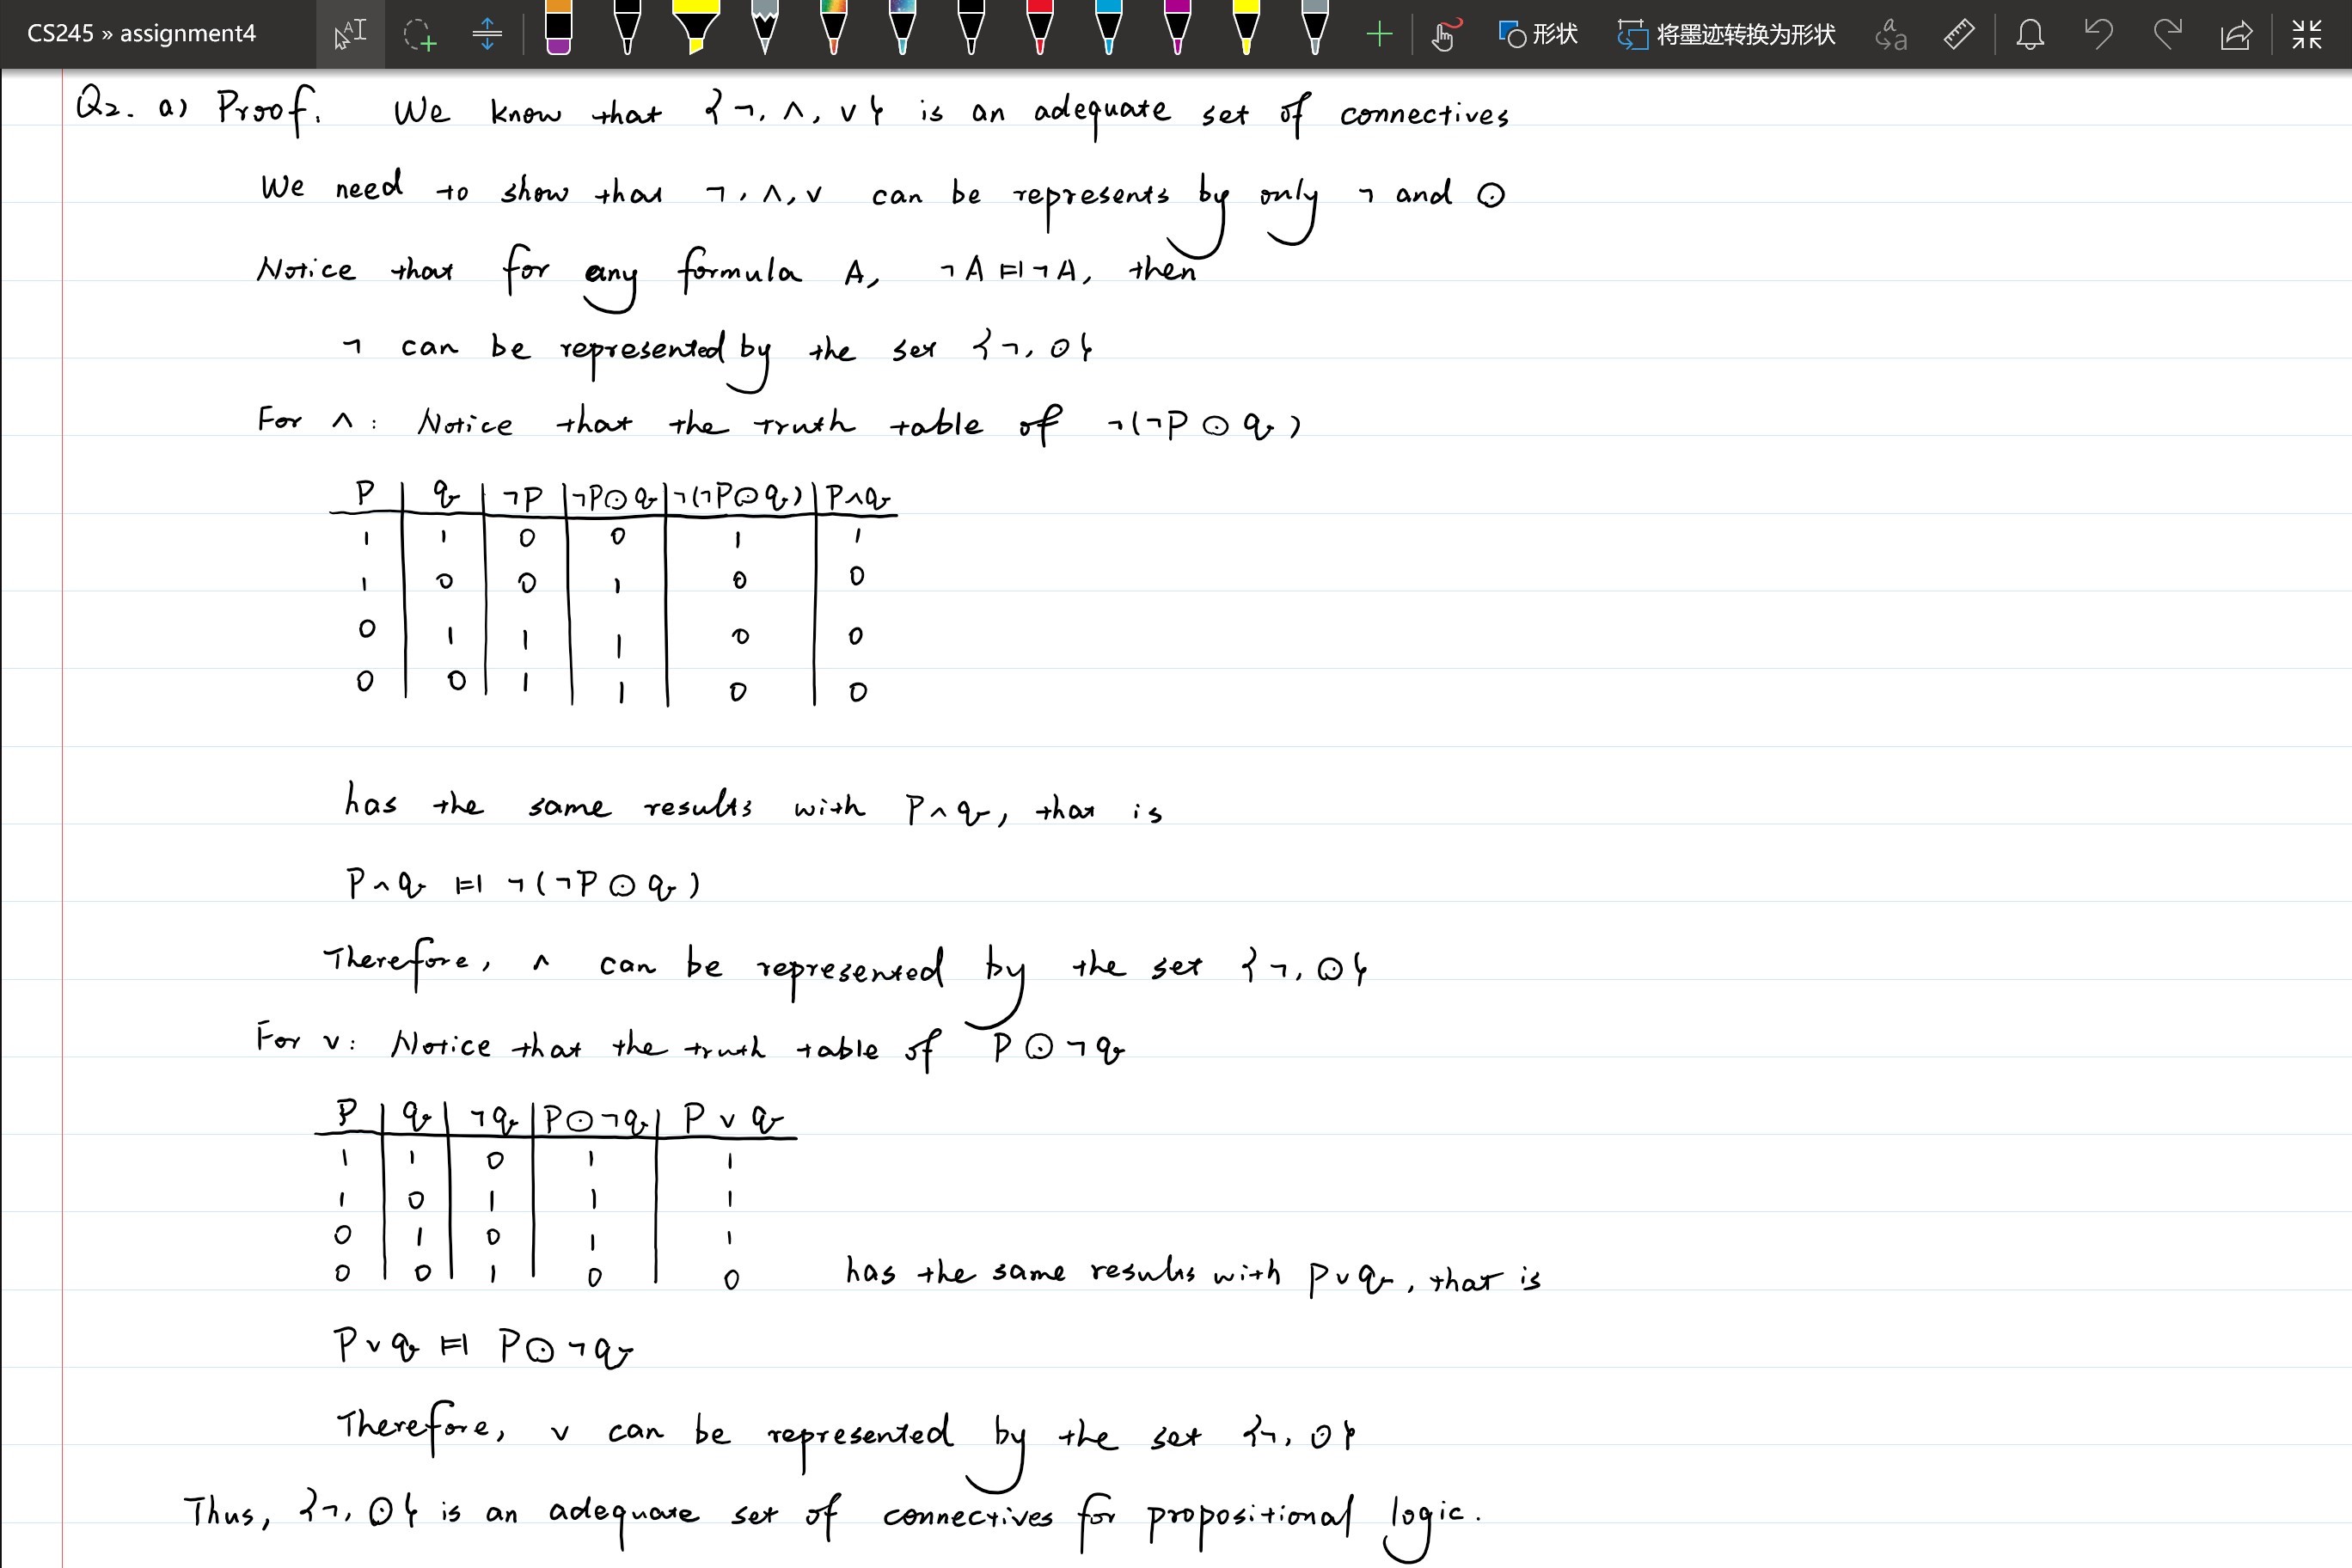 CS245 » assignment4
形状
将墨迹转换为形状
Q2. a) Proof. We know that {¬, ∧, ∨} is an adequate set of connectives
We need to show that ¬, ∧, ∨ can be represents by only ¬ and ⊙
Notice that for any formula A, ¬A ⊨⊣ ¬A, then
¬ can be represented by the set {¬, ⊙}
For ∧: Notice that the truth table of ¬(¬P ⊙ q)
P | q | ¬P | ¬P⊙q | ¬(¬P⊙q) | P∧q
1 | 1 | 0 | 0 | 1 | 1
1 | 0 | 0 | 1 | 0 | 0
0 | 1 | 1 | 1 | 0 | 0
0 | 0 | 1 | 1 | 0 | 0
has the same results with P∧q, that is
P∧q ⊨⊣ ¬(¬P⊙q)
Therefore, ∧ can be represented by the set {¬, ⊙}
For ∨: Notice that the truth table of P⊙¬q
P | q | ¬q | P⊙¬q | P ∨ q
1 | 1 | 0 | 1 | 1
1 | 0 | 1 | 1 | 1
0 | 1 | 0 | 1 | 1
0 | 0 | 1 | 0 | 0
has the same results with P∨q, that is
P∨q ⊨⊣ P⊙¬q
Therefore, ∨ can be represented by the set {¬, ⊙}
Thus, {¬, ⊙} is an adequate set of connectives for propositional logic.